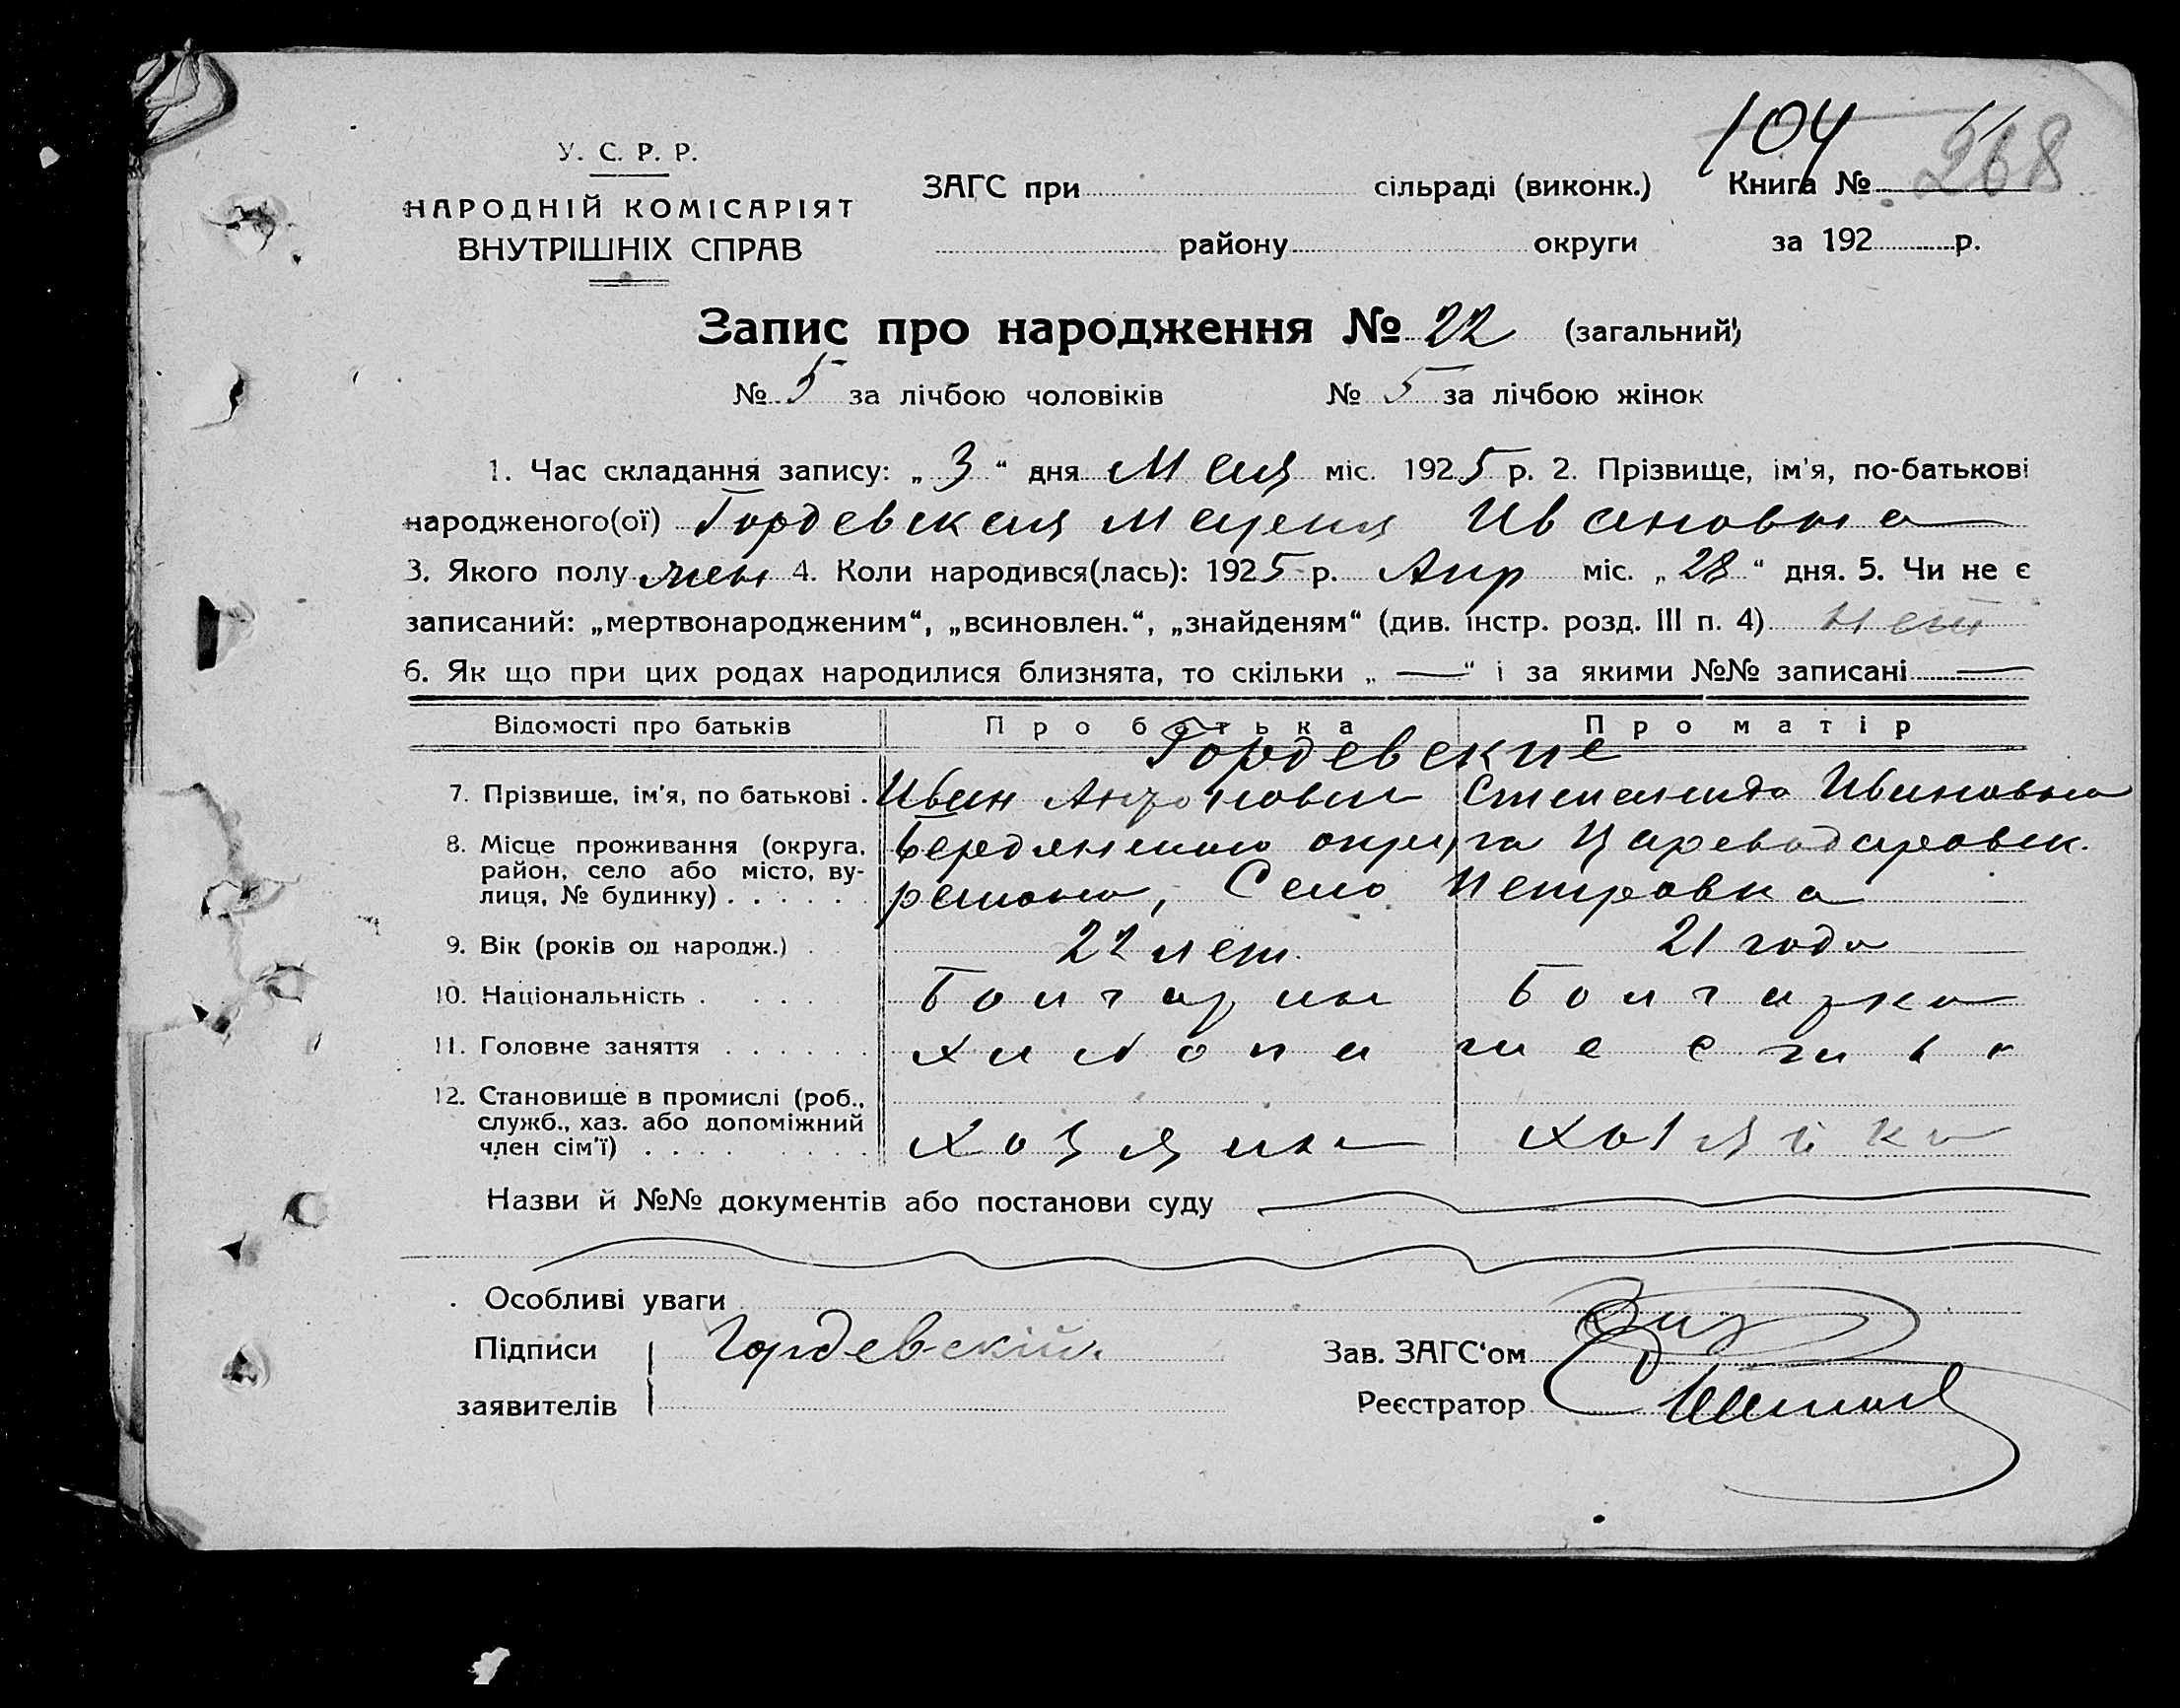 104
268
У. С. Р. Р.
НАРОДНІЙ КОМІСАРІЯТ
ВНУТРІШНІХ СПРАВ
ЗАГС при сільраді (виконк.) Книга №
району округи за 192 р.
Запис про народження № 22 (загальний)
№ 5 за лічбою чоловіків № 5 за лічбою жінок
1. Час складання запису: „ 3 “ дня Мая міс. 1925 р. 2. Прізвище, ім'я, по-батькові
народженого(ої) Гордевская Мария Ивановна
3. Якого полу жен 4. Коли народився(лась): 1925 р. Апр міс. „ 28 “ дня. 5. Чи не є
записаний: „мертвонародженим“, „всиновлен.“, „знайденям“ (див. інстр. розд. III п. 4) Нет
6. Як що при цих родах народилися близнята, то скільки „ — “ і за якими №№ записані —
Відомості про батьків Про батька Про матір
Гордевские
7. Прізвище, ім'я, по батькові . Иван Степанида Ивановна
8. Місце проживання (округа, район, село або місто, вулиця, № будинку) . . . . . . Бердянского округа Царевода­ровск.
района, Село Петровка
9. Вік (років од народж.) . 22 лет. 21 года
10. Національність . . . . Болгарин Болгарка
11. Головне заняття . . . . . . Хлебопашество
12. Становище в промислі (роб., служб., хаз. або допоміжний член сім'ї) . . . . Хозяин Хозяйка
Назви й №№ документів або постанови суду
Особливі уваги
Підписи Гордевскій. Зав. ЗАГС'ом
заявителів Реєстратор